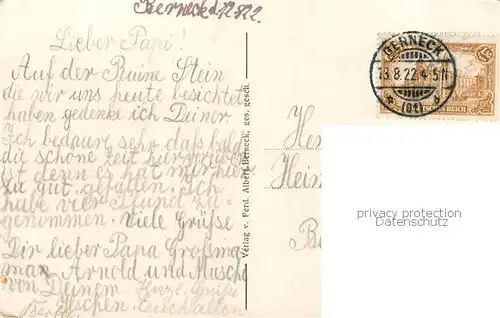 Berneck d. 12.8.22.
Lieber Papi!
Auf der Ruine Stein
die wir uns heute besichtet
haben gedenke ich Deiner.
Ich bedaure sehr daß bald
die schöne Zeit hier vorüber
ist denn es hat mir hier
zu gut gefallen. Ich
habe vier Pfund zu-
genommen. Viele Grüße
Dir lieber Papa Großma-
man Arnold und Muscha
von Deinem
Verlag v. Ferd. Albert, Berneck, ges. gesch.
BERNECK
13.8.22.4-5N
DEUTSCHES REICH
He
Hein
B
privacy protection
Datenschutz